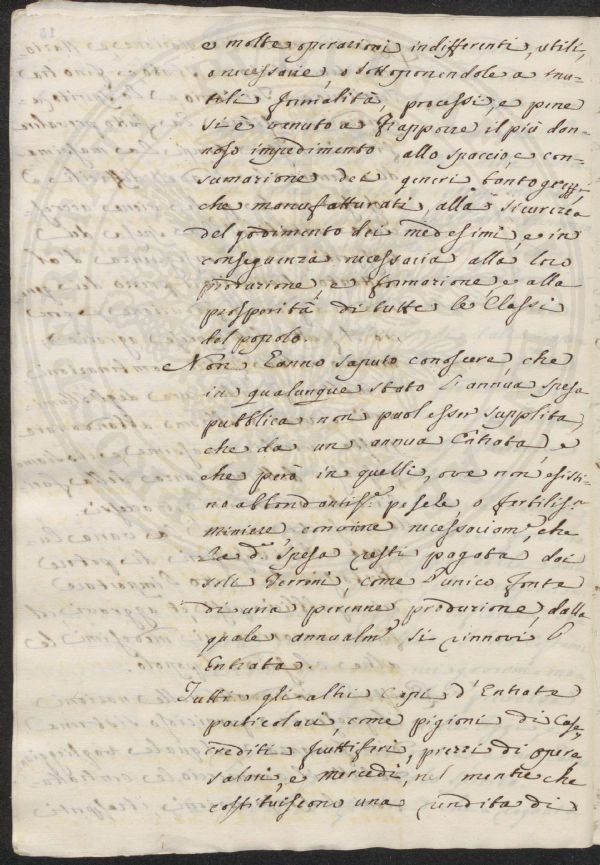 e molte operazioni indifferenti, utili,
o necessarie, o sottoponendole a inu-
tili formalità, processi, e pene
si è venuto a frapporre il più dan-
noso impedimento allo spaccio, e con-
sumazione dei generi tanto greggi,
che manufatturati, alla sicurezza
del godimento dei medesimi, e in
conseguenza necessaria alla loro
produzione, e formazione, e alla
prosperità di tutte le Classi
del popolo.
Non hanno saputo conoscere, che
in qualunque stato l'annua spesa
pubblica non puol esser supplita,
che da un annua Entrata, e
che però in quelli, ove non esisti-
no abbondantiss.e pesche, o fertiliss.e
miniere, conviene necessariam.e, che
la d.a spesa resti pagata dai
soli Terreni, come l'unico fonte
di una perenne produzione, dalla
quale annualm.e si rinnovi l'
Entrata.
Tutti gli altri Capi d'Entrate
particolari, come pigioni di Case,
crediti fruttiferi, prezzi di opera,
salari, e mercedi, nel mentre che
costituiscono una rendita di